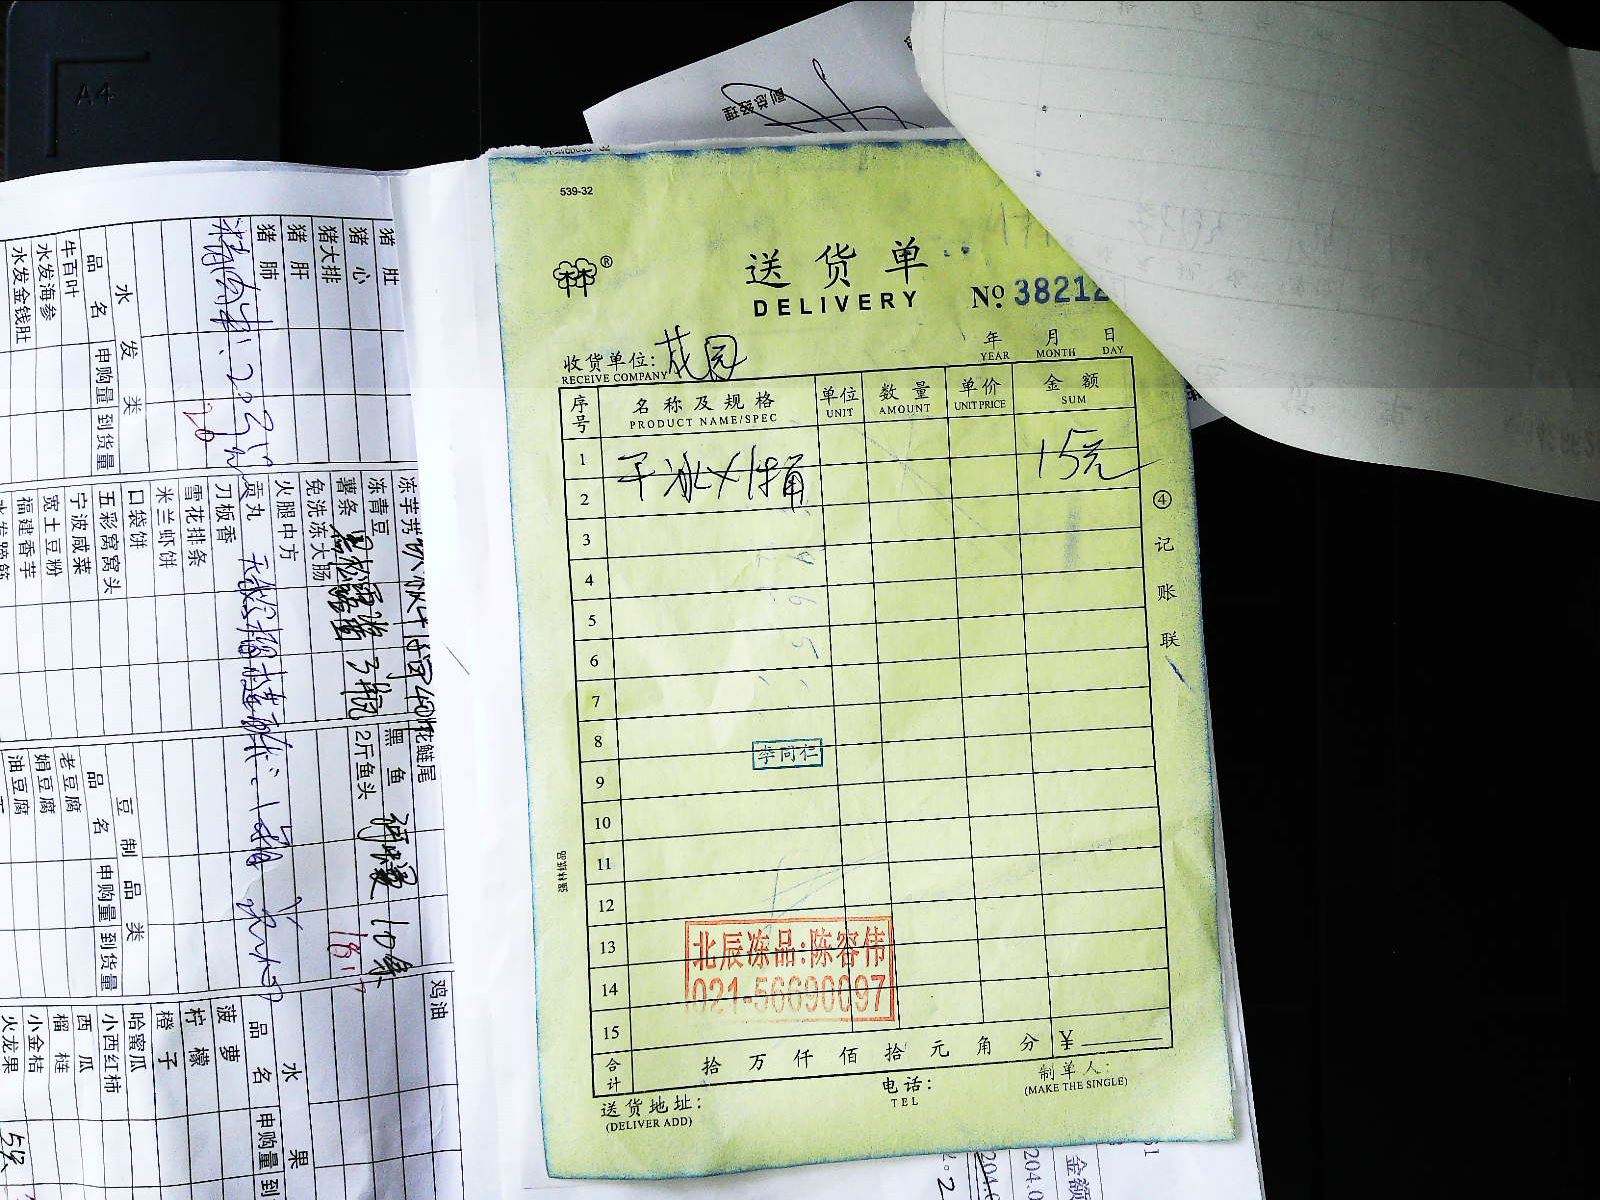 A4
副总经理
539-32
®
送货单
DELIVERY
No 38212
收货单位: 茂园
RECEIVE COMPANY
年 月 日
YEAR MONTH DAY
序号 名称及规格 单位 数量 单价 金额
PRODUCT NAME/SPEC UNIT AMOUNT UNIT PRICE SUM
1
干冰×1桶 15元
2
3
4
5
6
7
8
李同仁
9
10
11
12
13
北辰冻品:陈容伟
14
021-56690097
15
合计 拾 万 仟 佰 拾 元 角 分 ¥
送货地址:
(DELIVER ADD)
电话:
TEL
制单人:
(MAKE THE SINGLE)
④记账联
强林纸品
猪肚
猪心
猪大排
猪肝
猪肺
水发类
品名 申购量 到货量
牛百叶
水发海参
水发金钱肚
20
冻芋艿
冻青豆
薯条
免洗冻大肠
火腿中方
贡丸
刀板香
雪花排条
米兰虾饼
口袋饼
五彩窝窝头
宁波咸菜
宽土豆粉
福建香芋
水发蹄筋
3瓶
花鲢尾
黑鱼
2斤鱼头
10条
豆制品类
品名 申购量 到货量
老豆腐
娟豆腐
油豆腐
鸡油
水果
品名 申购量
菠萝
柠檬
橙子
哈蜜瓜
小西红柿
西瓜
榴梿
小金桔
火龙果
金额
204.0
204.0